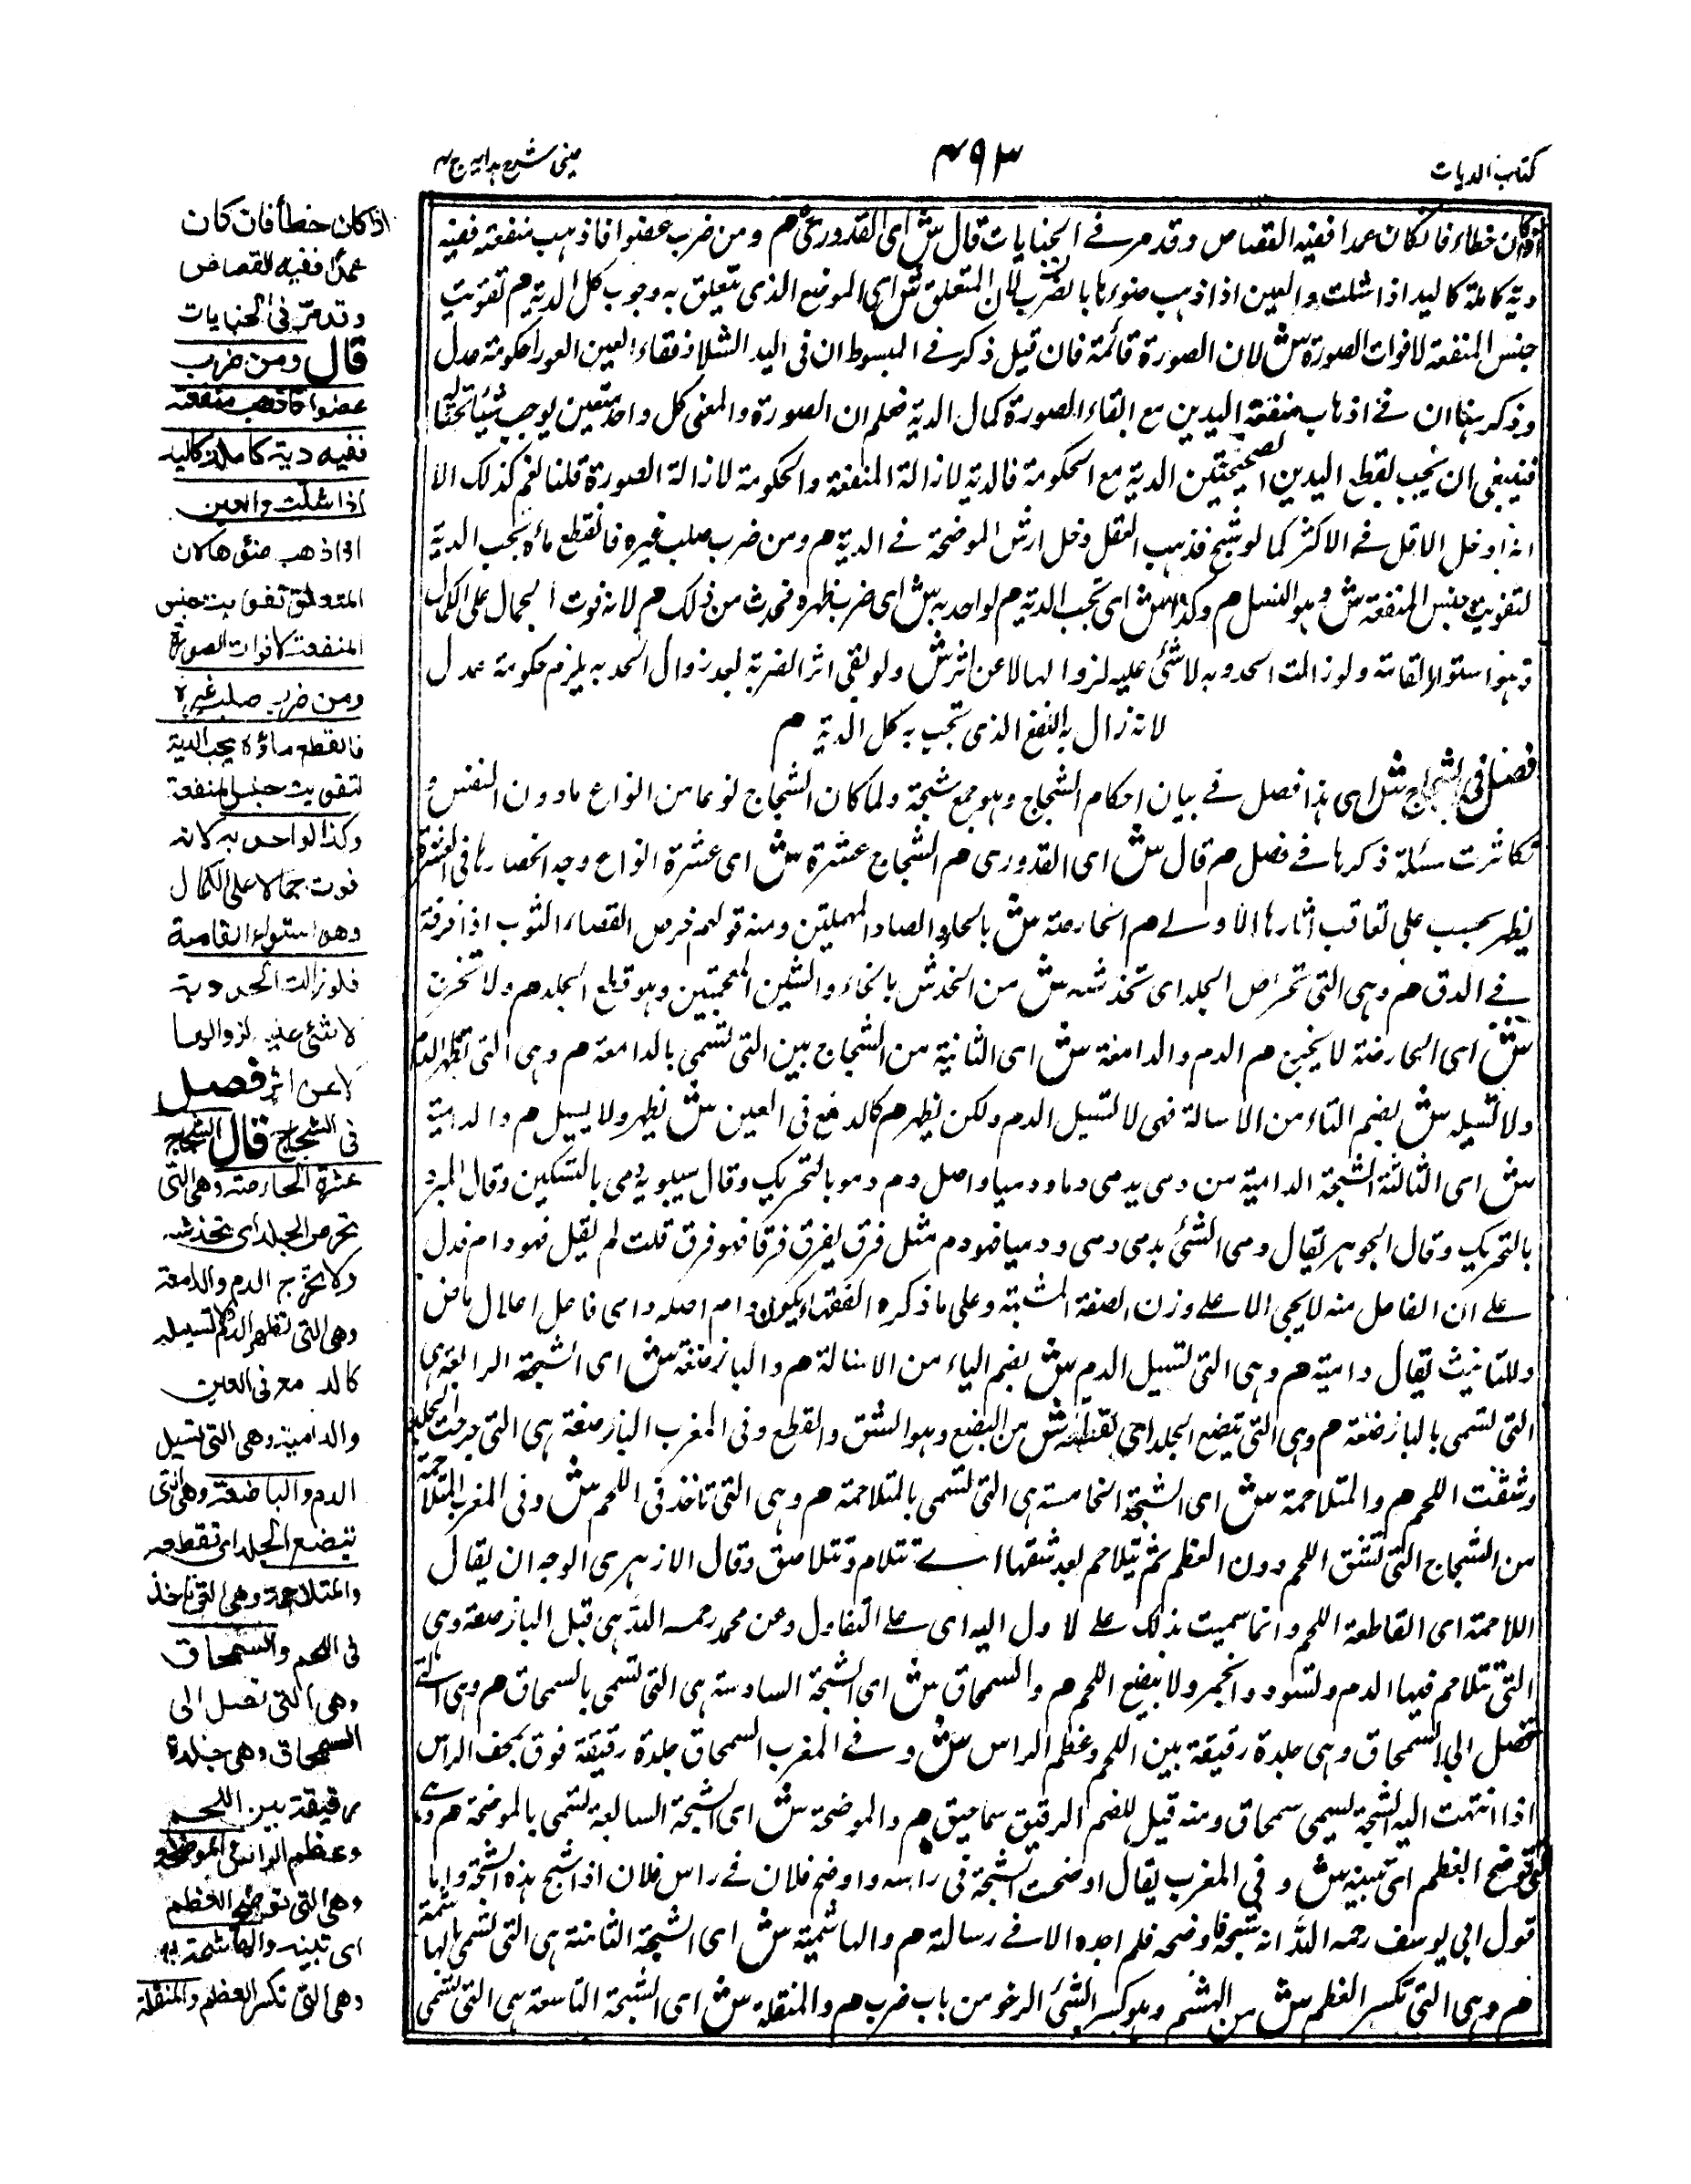 كتاب الديات
٤٩٣
عينى شرح هدايه ج ٤
اذا كان خطاء فان كان عمدا ففيه القصاص وقد مر فى الجنايات قال ش اى القدورى م ومن ضرب عضوا فاذهب منفعته ففيه
دية كاملة كاليد اذا شلت والعين اذا ذهب ضوءها بالضرب لان المتعلق ش اى الموضع الذى يتعلق به وجوب كل الدية م تفويت
جنس المنفعة لا فوات الصورة ش لان الصورة قائمة فان قيل ذكر فى المبسوط ان فى اليد الشلاء وفقاء العين العوراء حكومة عدل
وذكر هنا ان فى اذهاب منفعة اليدين مع ابقاء الصورة كمال الدية فعلم ان الصورة والمعنى كل واحد متعين يوجب شيئا بحقه
فينبغى ان يجب لقطع اليدين الصحيحتين الدية مع الحكومة فالدية لازالة المنفعة والحكومة لازالة الصورة قلنا نعم كذلك الا
انه ادخل الاقل فى الاكثر كما لو شج فذهب العقل دخل ارش الموضحة فى الدية م ومن ضرب صلب غيره فانقطع ماؤه يجب الدية
لتفويت جنس المنفعة ش وهو النسل م وكذا ش اى تجب الدية م لو احدبه ش اى ضرب ظهره فحدث من ذلك م لانه فوت الجمال على الكمال
وهو استواء القامة ولو زالت الحدوبه لا شئ عليه لزوالها لا عن اثر ش ولو بقى اثر الضربة بعد زوال الحدبه يلزم حكومة عدل
لانه زال به النفع الذى تجب به كل الدية م
فصل فى الشجاج ش اى هذا فصل فى بيان احكام الشجاج وهو جمع شجة ولما كان الشجاج نوعا من انواع ما دون النفس و
تكاثرت مسئلة ذكرها فى فصل م قال ش اى القدورى م الشجاج عشرة ش اى عشرة انواع وجه انحصارها فى العشرة
يظهر بحسب على تعاقب اثارها الاولى م الحارصة ش بالحاء والصاد المهملتين ومنه قولهم حرص القصار الثوب اذا خرقه
فى الدق م وهى التى تحرص الجلد اى تخدشه ش من الخدش بالخاء والشين المعجمتين وهو قطع الجلد م ولا تخرج
ش اى الحارصة لا يخرج م الدم والدامعة ش اى الثانية من الشجاج بين التى تسمى بالدامعة م وهى التى تظهر الدم
ولا تسيله ش بضم التاء من الاسالة فهى لا تسيل الدم ولكن يظهر م كالدمع فى العين ش يظهر ولا يسيل م والدامية
ش اى الثالثة الشجة الدامية من دمى يدمى دما ودميا واصل دم دمو بالتحريك وقال سيبويه دمى بالتسكين وقال المبرد
بالتحريك وقال الجوهر يقال دمى الشئ يدمى دمى ودميا فهو دم مثل فرق يفرق فرقا فهو فرق قلت لم يقل فهو دام فدل
على ان الفاعل منه لا يجى الا على وزن الصفة المشبهة وعلى ما ذكره الفقهاء يكون دام اصله دامى فاعل اعلال قاض
وللتانيث يقال دامية م وهى التى تسيل الدم ش بضم الياء من الاسالة م والباضعة ش اى الشجة الرابعة هى
التى تسمى بالباضعة م وهى التى تبضع الجلد اى تقطعه ش من البضع وهو الشق والقطع وفى المغرب الباضعة هى التى جرحت الجلد
وشقت اللحم م والمتلاحمة ش اى الشجة الخامسة هى التى تسمى بالمتلاحمة م وهى التى تاخذ فى اللحم ش وفى المغرب المتلاحمة
من الشجاج التى تشق اللحم دون العظم ثم يتلاحم بعد شقها اى تتلام وتتلاصق وقال الازهرى الوجه ان يقال
اللاحمة اى القاطعة اللحم وانما سميت بذلك على لاول اليه اى على التفاول وعن محمد رحمه الله هى قبل الباضعة وهى
التى تتلاحم فيها الدم وتسود وانجمر ولا يبضع اللحم م والسمحاق ش اى الشجة السادسة هى التى تسمى بالسمحاق م وهى التى
تصل الى السمحاق وهى جلدة رقيقة بين اللحم وعظم الراس ش وفى المغرب السمحاق جلدة رقيقة فوق قحف الراس
اذا انتهت اليه الشجة يسمى سمحاق ومنه قيل للضم الرقيق سماحيق م والموضحة ش اى الشجة السابعة تسمى بالموضحة م وهى
التى توضح العظم اى تبينه ش وفى المغرب يقال اوضحت الشجة فى راسه واوضح فلان فى راس فلان اذا شج هذه الشجة واما
قول ابى يوسف رحمه الله انه شجة فاوضحه فلم اجده الا فى رسالته م والهاشمة ش اى الشجة الثامنة هى التى تسمى بالهاشمة
م وهى التى تكسر العظم ش من الهشم وهو كسر الشئ الرخو من باب ضرب م والمنقلة ش اى الشجة التاسعة هى التى تسمى
اذا كان خطأ فان كان
عمدًا ففيه القصاص
وقد مرّ فى الجنايات
قال ومن ضرب
عضوا فاذهب منفعته
ففيه دية كاملة كاليد
اذا شلت والعين
اذا ذهب ضوئها لان
المتعلق تفويت جنس
المنفعة لا فوات الصورة
ومن ضرب صلب غيره
فانقطع ماؤه يجب الدية
لتفويت جنس المنفعة
وكذا لو احدبه لانه
فوت جمالا على الكمال
وهو استواء القامة
فلو زالت الحدوبة
لا شئ عليه لزوالها
لا عن اثر فصل
فى الشجاج قال الشجاج
عشرة الحارصة وهى التى
تحرص الجلد اى تخدشه
ولا تخرج الدم والدامعة
وهى التى تظهر الدم ولا تسيله
كالدمع فى العين
والدامية وهى التى تسيل
الدم والباضعة وهى التى
تبضع الجلد اى تقطعه
والمتلاحمة وهى التى تاخذ
فى اللحم والسمحاق
وهى التى تصل الى
السمحاق وهى جلدة
رقيقة بين اللحم
وعظم الراس والموضحة
وهى التى توضح العظم
اى تبينه والهاشمة
وهى التى تكسر العظم والمنقلة